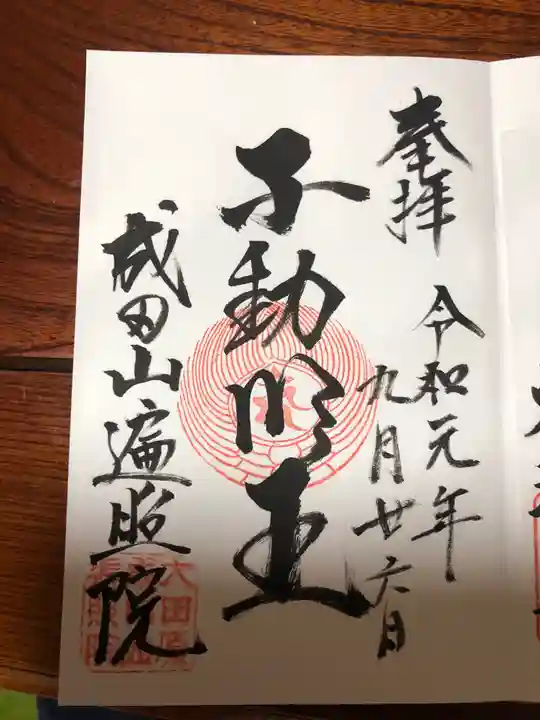 奉拝
令和元年
九月廿六日
不動明王
成田山遍照院
大田原